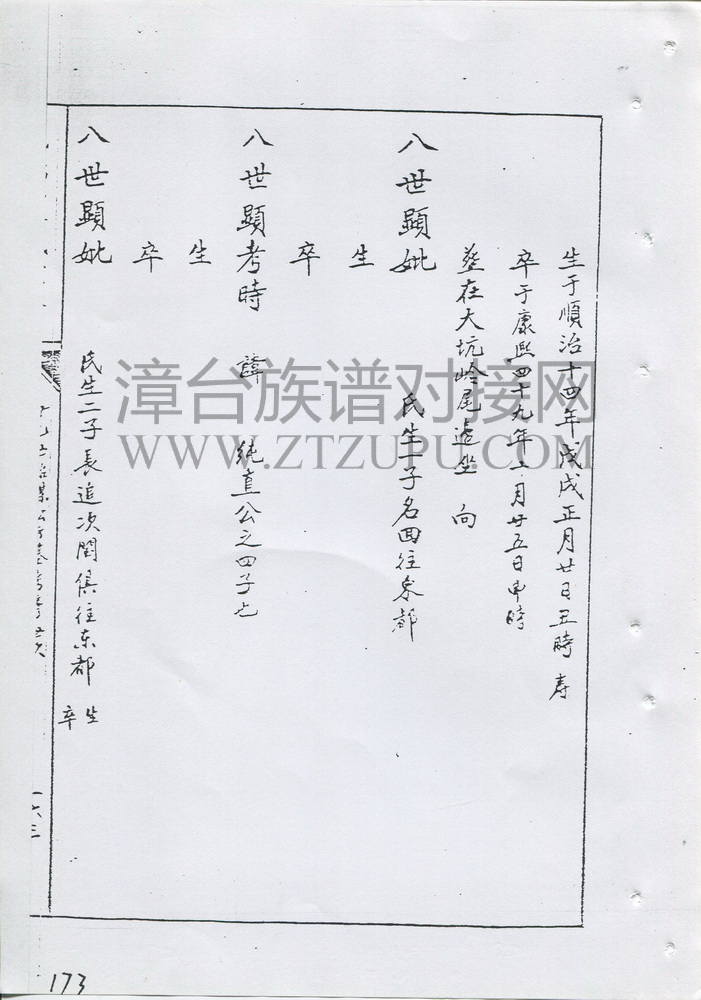 生于順治十四年戊戌正月廿日丑時 寿
卒于康熙四十九年 月廿五日申時
葬在大坑岭尾 坐 向
八世顯妣 氏生一子名 往东都
生
卒
八世顯考時 諱 純直公之四子也
生
卒
八世顯妣 氏生二子長追次閏俱往东都 生
卒
漳台族谱对接网
WWW.ZTZUPU.COM
一六三
173